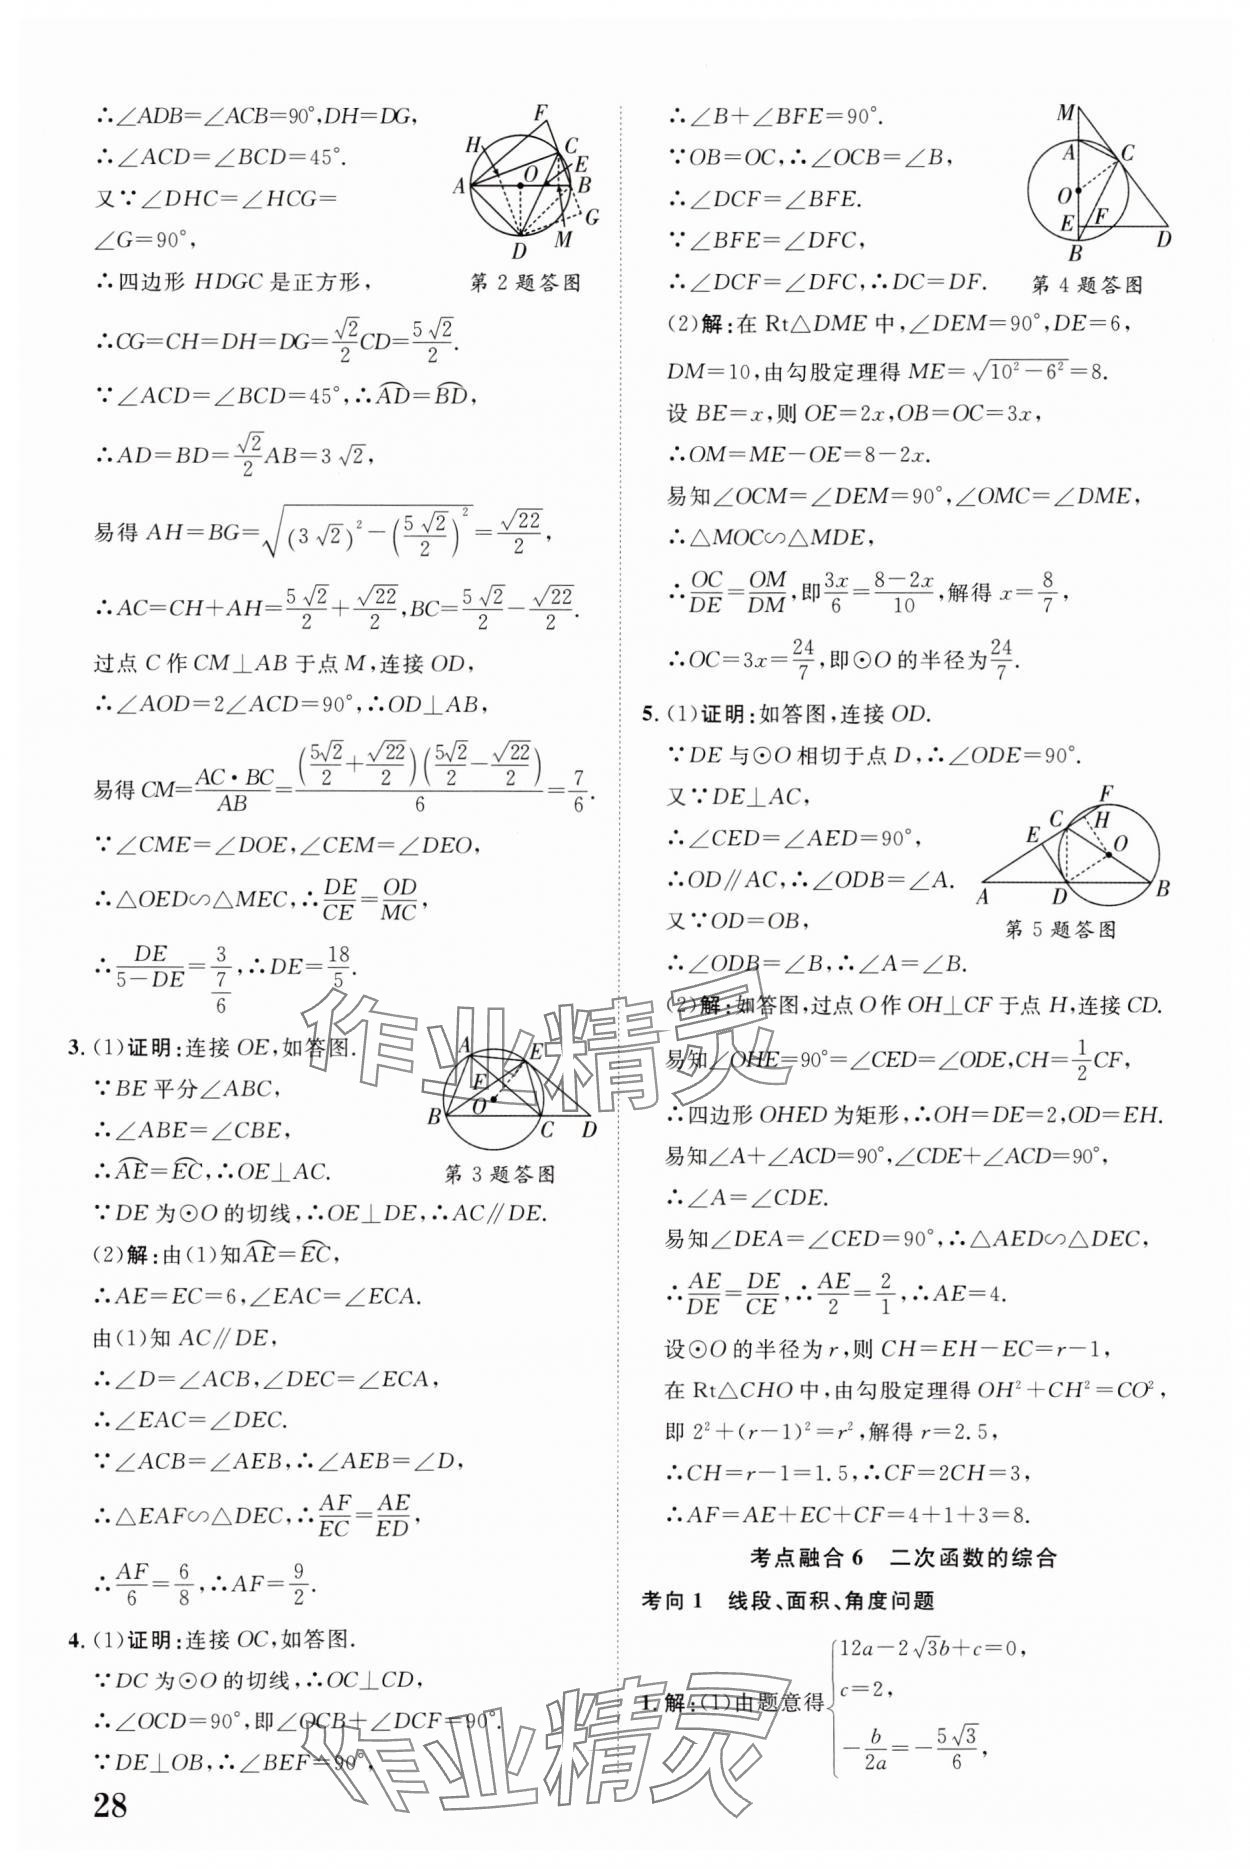 ∴∠ADB=∠ACB=90°,DH=DG,
∴∠ACD=∠BCD=45°.
又∵∠DHC=∠HCG=
∠G=90°,
∴四边形 HDGC 是正方形,
第2题答图
∴CG=CH=DH=DG=√2/2 CD=5√2/2.
∵∠ACD=∠BCD=45°,∴A͡D=B͡D,
∴AD=BD=√2/2 AB=3√2,
易得 AH=BG=√((3√2)²-(5√2/2)²)=√22/2,
∴AC=CH+AH=5√2/2+√22/2,BC=5√2/2-√22/2.
过点 C 作 CM⊥AB 于点 M,连接 OD,
∴∠AOD=2∠ACD=90°,∴OD⊥AB,
易得 CM=AC·BC/AB=(5√2/2+√22/2)(5√2/2-√22/2)/6=7/6.
∵∠CME=∠DOE,∠CEM=∠DEO,
∴△OED∽△MEC,∴DE/CE=OD/MC,
∴DE/(5-DE)=3/(7/6),∴DE=18/5.
3. (1)证明:连接 OE,如答图.
∵BE 平分∠ABC,
∴∠ABE=∠CBE,
∴A͡E=E͡C,∴OE⊥AC.
第3题答图
∵DE 为⊙O 的切线,∴OE⊥DE,∴AC∥DE.
(2)解:由(1)知A͡E=E͡C,
∴AE=EC=6,∠EAC=∠ECA.
由(1)知 AC∥DE,
∴∠D=∠ACB,∠DEC=∠ECA,
∴∠EAC=∠DEC.
∵∠ACB=∠AEB,∴∠AEB=∠D,
∴△EAF∽△DEC,∴AF/EC=AE/ED,
∴AF/6=6/8,∴AF=9/2.
4. (1)证明:连接 OC,如答图.
∵DC 为⊙O 的切线,∴OC⊥CD,
∴∠OCD=90°,即∠OCB+∠DCF=90°.
∵DE⊥OB,∴∠BEF=90°,
28
∴∠B+∠BFE=90°.
∵OB=OC,∴∠OCB=∠B,
∴∠DCF=∠BFE.
∵∠BFE=∠DFC,
∴∠DCF=∠DFC,∴DC=DF.
第4题答图
(2)解:在 Rt△DME 中,∠DEM=90°,DE=6,
DM=10,由勾股定理得 ME=√(10²-6²)=8.
设 BE=x,则 OE=2x,OB=OC=3x,
∴OM=ME-OE=8-2x.
易知∠OCM=∠DEM=90°,∠OMC=∠DME,
∴△MOC∽△MDE,
∴OC/DE=OM/DM,即3x/6=(8-2x)/10,解得 x=8/7,
∴OC=3x=24/7,即⊙O 的半径为24/7.
5. (1)证明:如答图,连接 OD.
∵DE 与⊙O 相切于点 D,∴∠ODE=90°.
又∵DE⊥AC,
∴∠CED=∠AED=90°,
∴OD∥AC,∴∠ODB=∠A.
又∵OD=OB,
∴∠ODB=∠B,∴∠A=∠B.
第5题答图
(2)解:如答图,过点 O 作 OH⊥CF 于点 H,连接 CD.
易知∠OHE=90°=∠CED=∠ODE,CH=1/2 CF,
∴四边形 OHED 为矩形,∴OH=DE=2,OD=EH.
易知∠A+∠ACD=90°,∠CDE+∠ACD=90°,
∴∠A=∠CDE.
易知∠DEA=∠CED=90°,∴△AED∽△DEC,
∴AE/DE=DE/CE,∴AE/2=2/1,∴AE=4.
设⊙O 的半径为 r,则 CH=EH-EC=r-1,
在 Rt△CHO 中,由勾股定理得 OH²+CH²=CO²,
即 2²+(r-1)²=r²,解得 r=2.5,
∴CH=r-1=1.5,∴CF=2CH=3,
∴AF=AE+EC+CF=4+1+3=8.
考点融合6 二次函数的综合
考向1 线段、面积、角度问题
1. 解:(1)由题意得{12a-2√3b+c=0,
c=2,
-b/2a=-5√3/6,
作业精灵
作业精灵